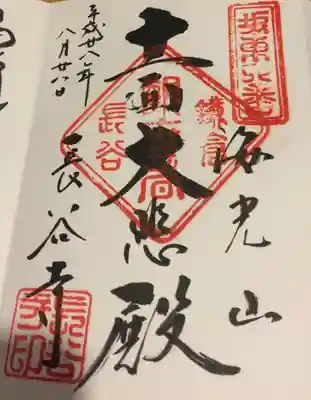 海光山
十一面大悲殿
鎌倉
長谷
長谷寺
平成廿八年
八月廿八日